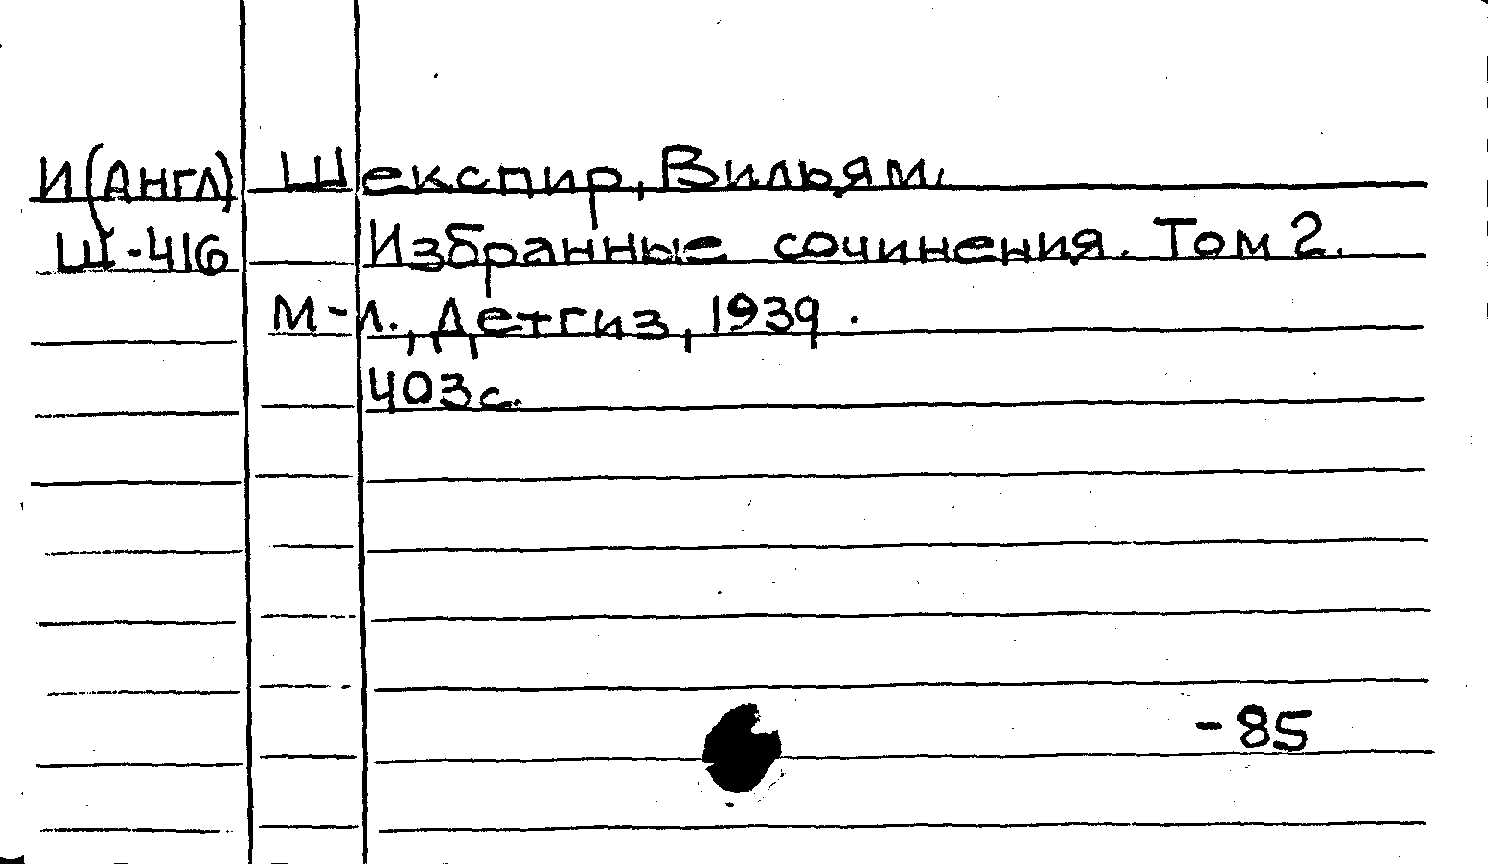 И(Англ) Шекспир, Вильям.
Ш-416 Избранные сочинения. Том 2.
М-Л., Детгиз, 1939.
403с.
-85